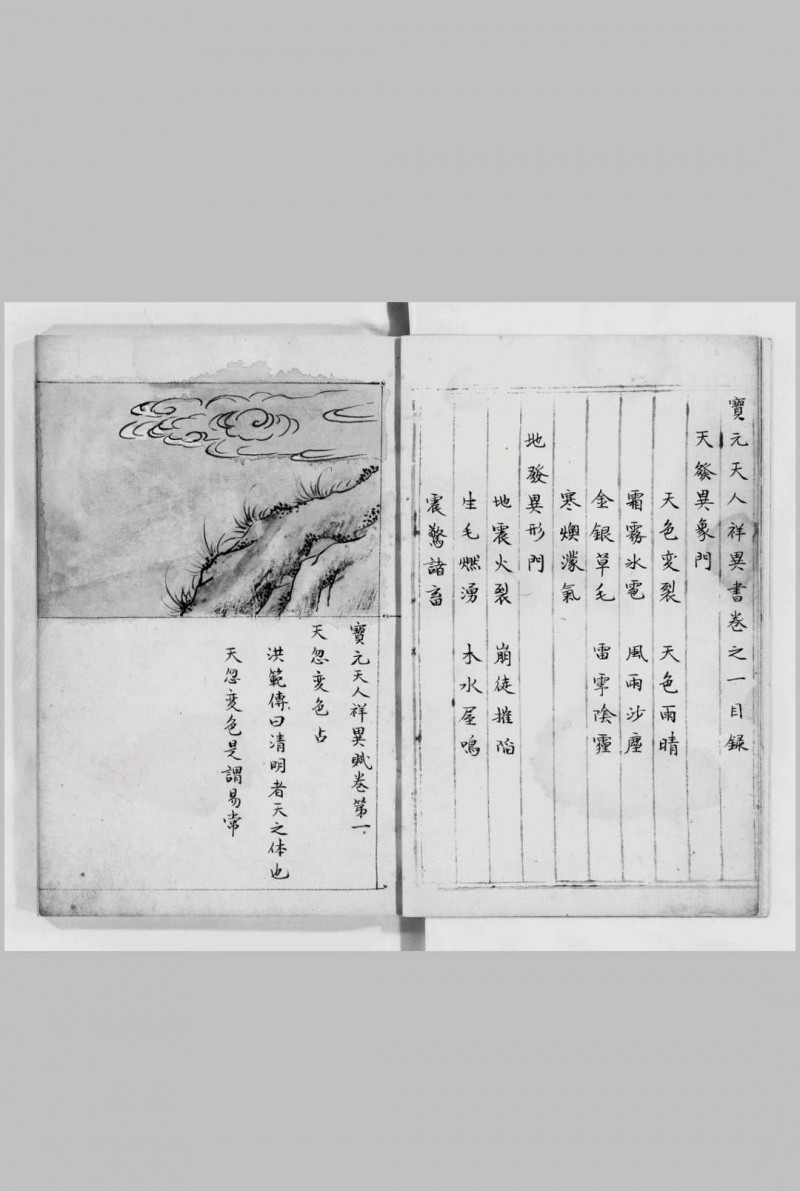 寶元天人祥異書卷之一目録
天發異象門
天色変裂 天色雨晴
霜霧氷雹 風雨沙塵
金銀草毛 雷霹陰霾
寒燠濛氣
地發異形門
地震火裂 崩徒摧陷
生毛燃湧 木水屋鳴
震驚諸畜
寶元天人祥異賦卷第一
天忽变色占
洪範傳曰清明者天之体也
天忽変色是謂易常